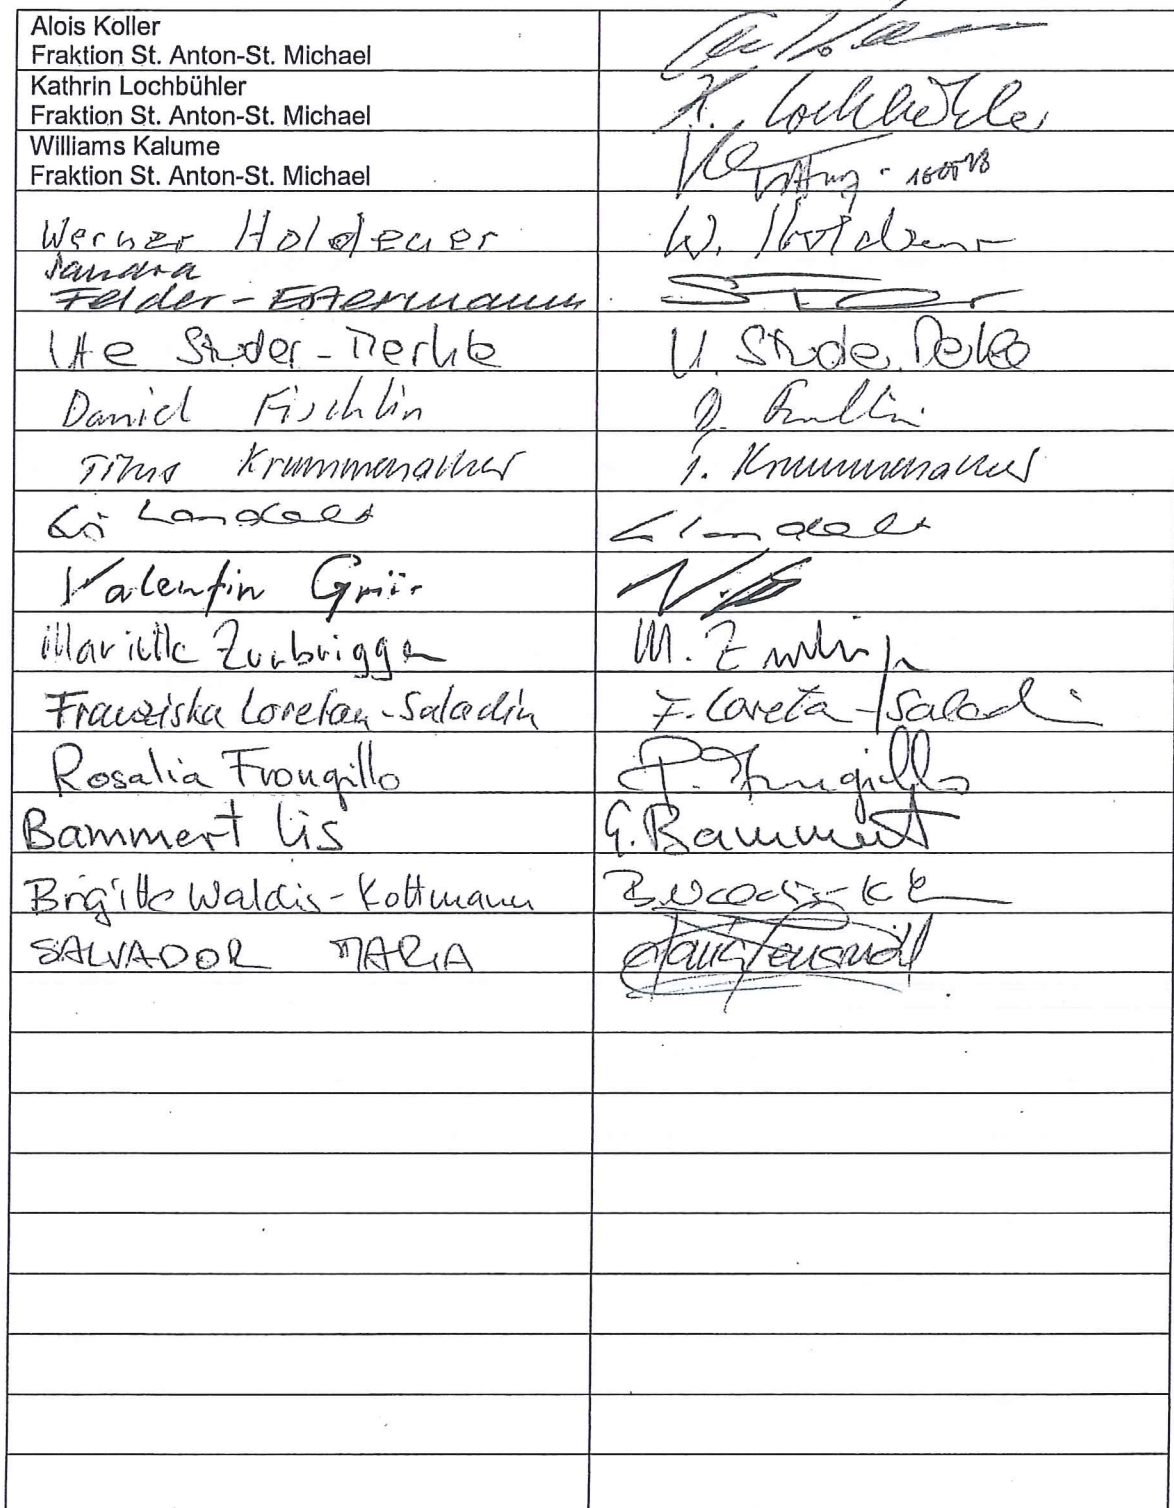 Alois Koller
Fraktion St. Anton-St. Michael
Kathrin Lochbühler
Fraktion St. Anton-St. Michael
K. Lochbühler
Williams Kalume
Fraktion St. Anton-St. Michael
Werner Holdener W. Holdener
Sandra
Felder-Estermann
Ute Studer-Merkle U. Studer
Daniel Fischlin D.
Titus Krummenacher T. Krummenacher
Landolt
Valentin
Marielle Zurbriggen M.
Franziska Loretan-Saladin F. Loreta-Saladi
Rosalia Frongillo R. Frongillo
Bammert Lis E. Bammert
Brigitte Waldis-Kottmann B. Waldis-K
SALVADOR MARIA